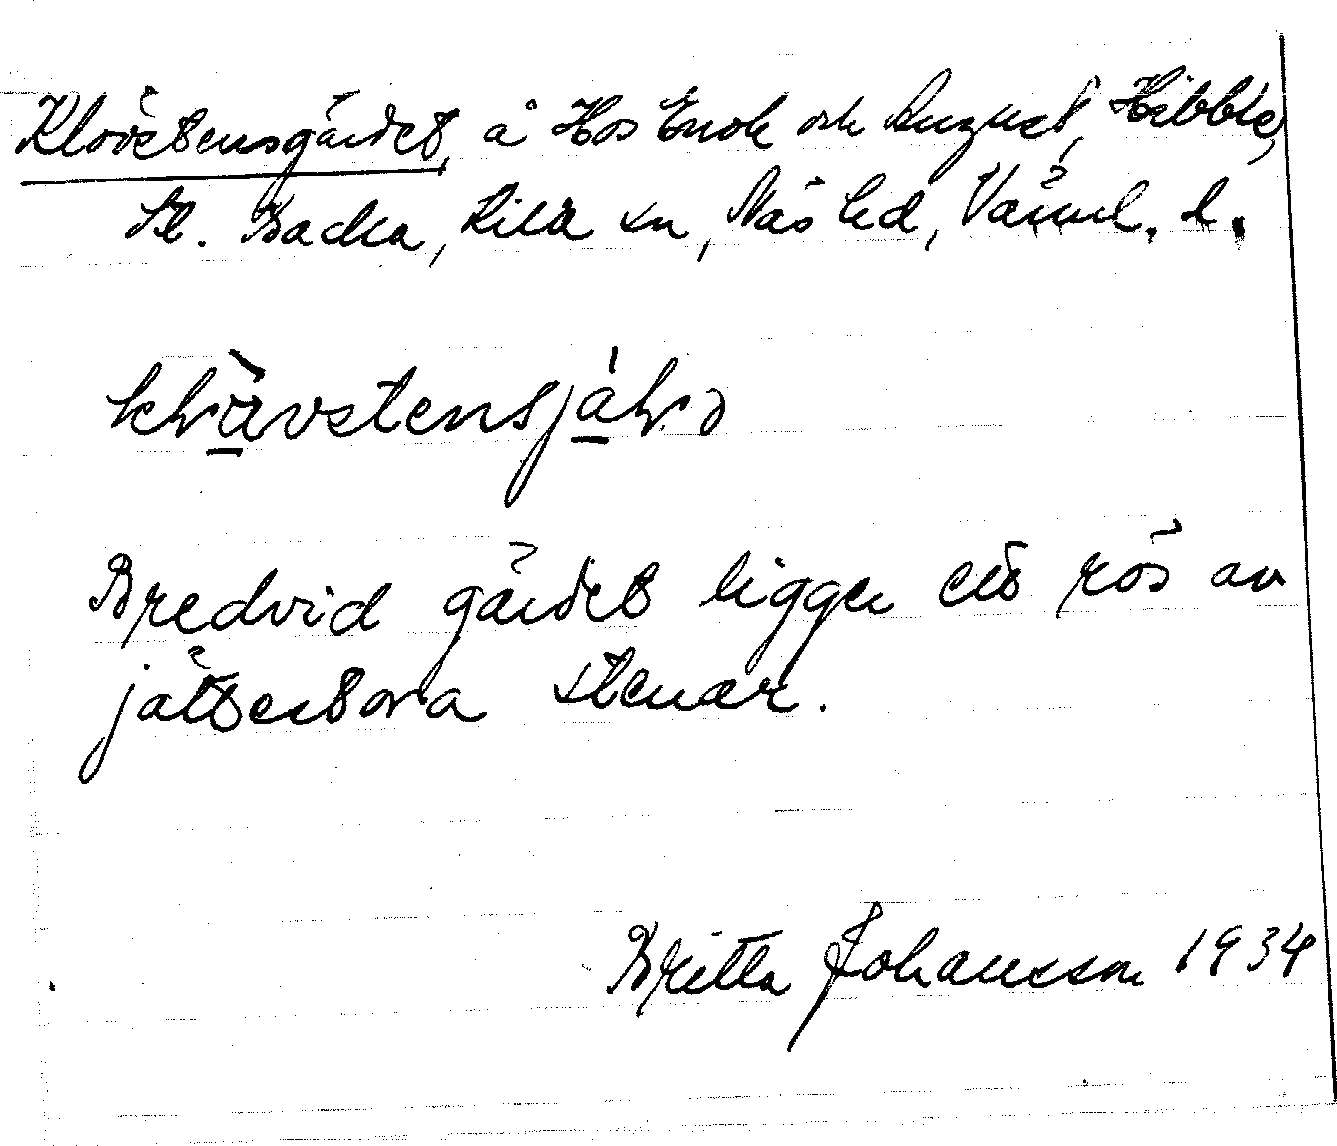 Klovstensgärdet, å Hos Enok och August, Häbble,
St. Backa, Lilla sn, Näs hd, Värml. l.
klrävstensjáhrə
Bredvid gärdet ligger ett rös av
jättestora stenar.
Britta Johansson 1934